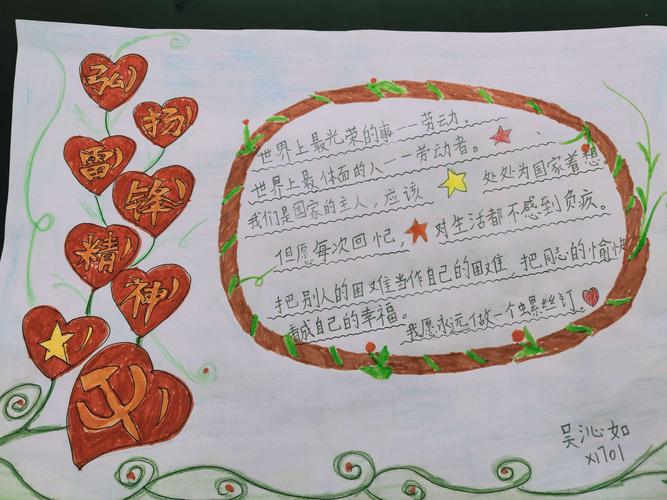 弘
扬
雷
锋
精
神
世界上最光荣的事——劳动。
世界上最体面的人——劳动者。
我们是国家的主人,应该 处处为国家着想。
但愿每次回忆, 对生活都不感到负疚。
把别人的困难当作自己的困难,把同志的愉快
看成自己的幸福。 我愿永远做一个螺丝钉。
吴沁如
x1701